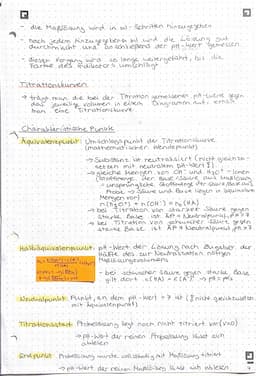 - die Maßlösung wird in ml-Schritten hinzugegeben
- nach jedem hinzugegebenen ml wird die Lösung gut
durchmischt und anschließend der pH-Wert gemessen
- dieser Vorgang wird so lange weitergeführt, bis die
Farbe des Indikators umschlägt
Titrationskurven
→ trägt man die bei der Titration gemessenen pH-Werte gegen
das jeweilige Volumen in einem Diagramm auf, erhält
man eine Titrationskurve
Charakteristische Punkte
Äquivalenzpunkt: Umschlagspunkt der Titrationskurve
(mathematischer Wendepunkt)
→ Substanz ist neutralisiert (nicht gleichzu-
setzen mit neutralem pH-Wert!)
→ gleiche Mengen von OH⁻ und H₃O⁺ Ionen
Probe → Säure und Base liegen in äquivalenten
Mengen vor)
n(H₃O⁺) = n(OH⁻)
→ bei Titration von starker Säure gegen
starke Base ist ÄP = Neutralpunkt, pH=7
→ bei Titration von schwacher Säure gegen
starke Base ist ÄP ≠ Neutralpunkt, pH>7
Halbäquivalenzpunkt: pH-Wert der Lösung nach Zugabe der
Hälfte des zur Neutralisation nötigen
Maßlösungsvolumens
- bei schwacher Säure gegen starke Base
gilt dort c(HA) = c(A⁻) → pH = pKs
Neutralpunkt: Punkt, an dem pH-Wert = 7 ist (nicht gleichzusetzen
mit Äquivalenzpunkt)
Titrationsstart: Probelösung liegt noch nicht titriert vor (V=0)
→ pH-Wert der reinen Probelösung lässt sich
ablesen
Endpunkt: Probelösung wurde vollständig mit Maßlösung titriert
→ pH-Wert der reinen Maßlösung lässt sich ablesen